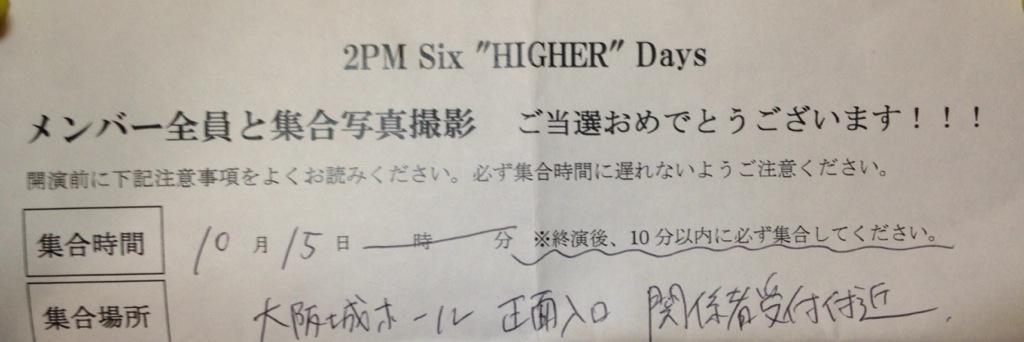 2PM Six "HIGHER" Days
メンバー全員と集合写真撮影　ご当選おめでとうございます！！！
開演前に下記注意事項をよくお読みください。必ず集合時間に遅れないようご注意ください。
集合時間 10月15日 時 分 ※終演後、10分以内に必ず集合してください。
集合場所 大阪城ホール 正面入口 関係者受付付近.